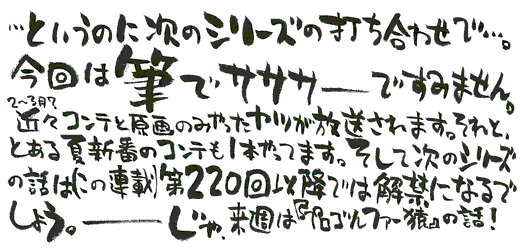 …というのに次のシリーズの打ち合わせで…。
今回は筆でササササ――ですみません。
2~3日?
近々コンテと原画のみやったヤツが放送されます。それと、
とある夏新番のコンテも1本やってます。そして次のシリーズ
の話は(この連載)第220回以降では解禁になるで
しょう。――――じゃ、来週は『プロゴルファー猿』の話!